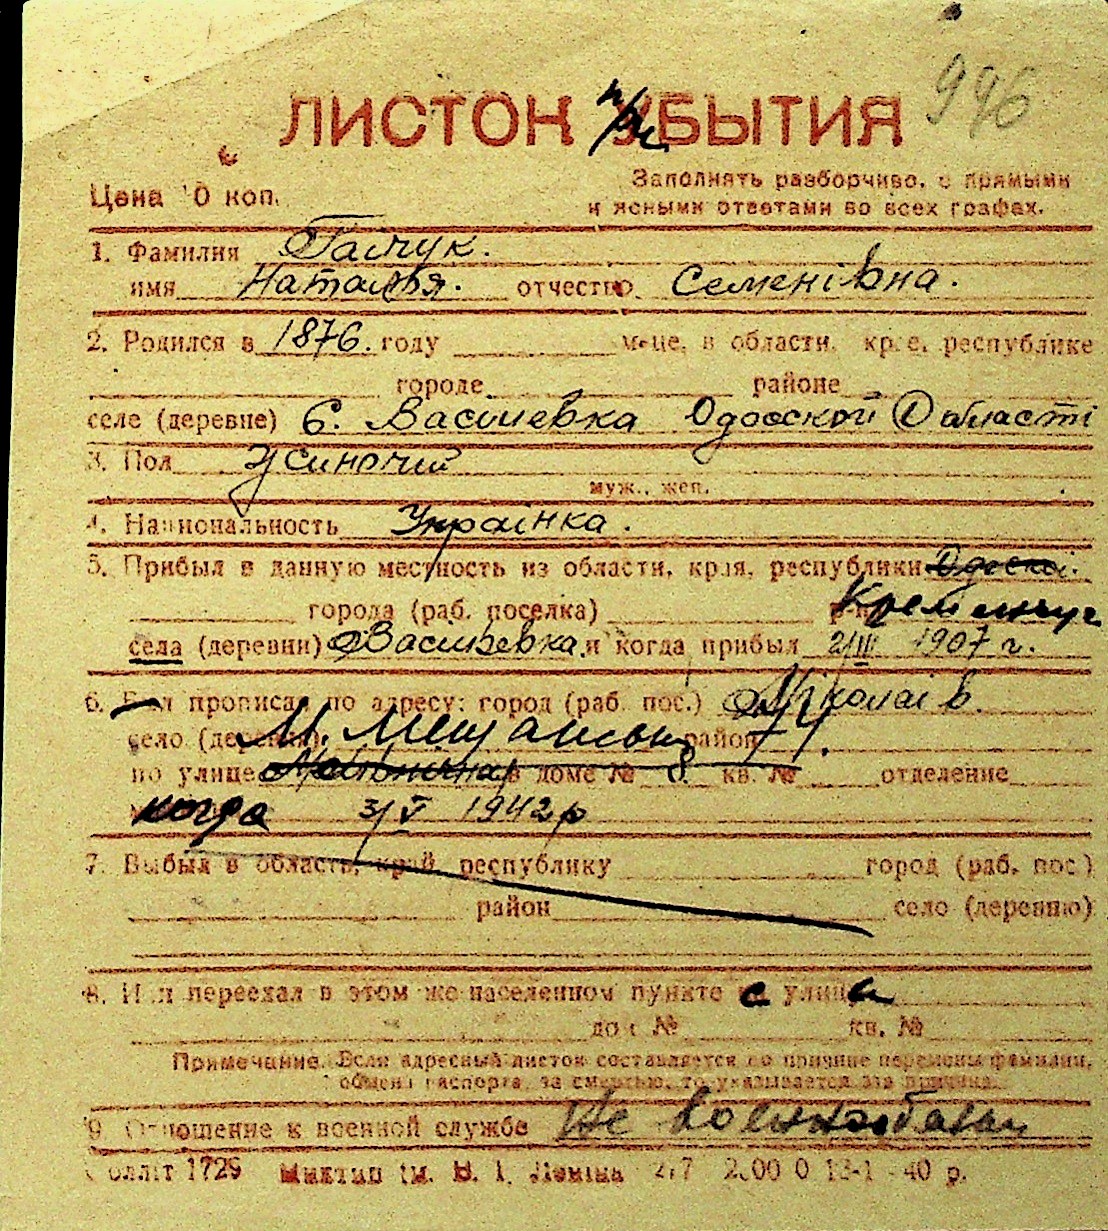 996
ЛИСТОК прБЫТИЯ
Цена 10 коп.
Заполнять разборчиво, с прямыми
и ясными ответами во всех графах.
1. Фамилия Гайчук.
имя Наталья. отчество Семенівна.
2. Родился в 1876. году месяце, в области, крае, республике
городе районе
селе (деревне) С. Василевка Одосской Области
3. Пол Жиночий
муж., жен.
4. Национальность Украінка.
5. Прибыл в данную местность из области, края, республики Одоскоі.
города (раб. поселка)
села (деревни) Васильевка, и когда прибыл 2/III 1907 г.
6. Был прописан по адресу: город (раб. пос.) Міколаів.
село (деревня), район
по улице в доме № 8 кв. № отделение
когда 3/V 1942 р
7. Выбыл в область, край, республику город (раб. пос.)
район село (деревню)
8. Или переехал в этом же населенном пункте с улицы
дом № кв. №
Примечание. Если адресный листок составляется по причине перемены фамилии,
обмена паспорта, за смертью, то указывается эта причина.
9. Отношение к военной службе Не
Обліт 1729 им. В. І. Леніна 40 р.